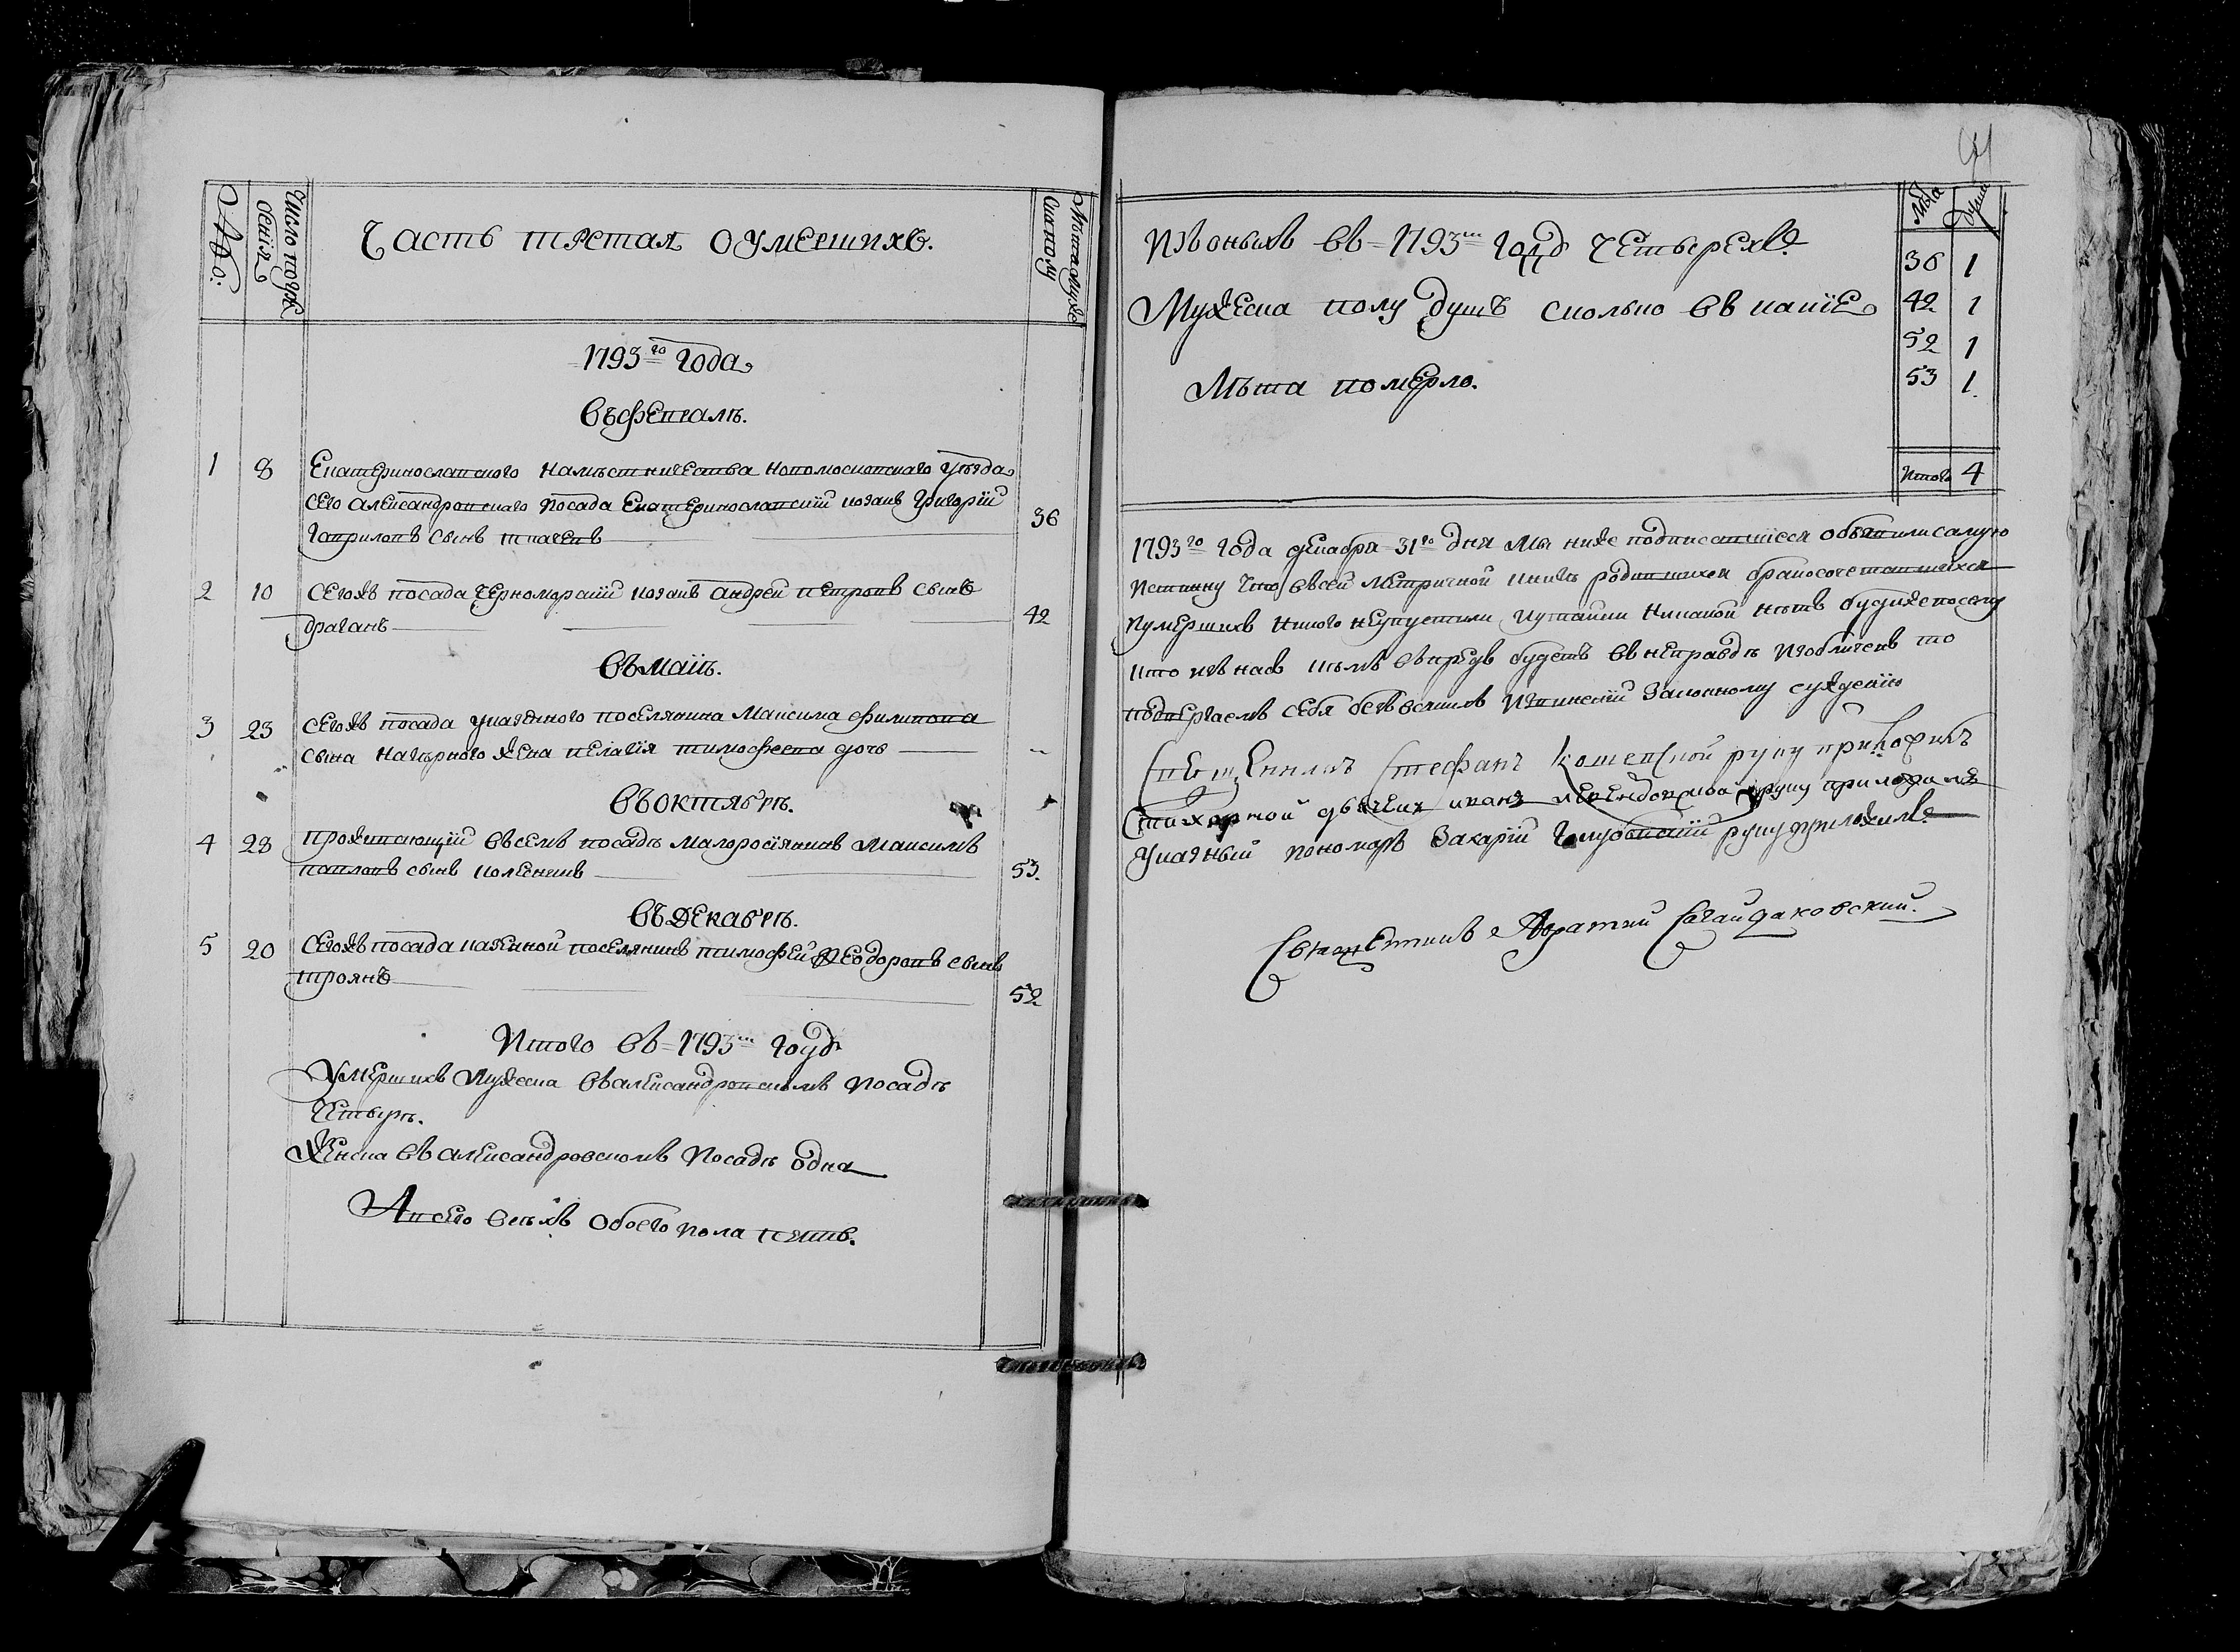 №:
Число погребенія
Часть третая о умершихъ.
1793го года
въ Февралѣ.
1 8 Екатеринославского Намѣстничества Новомосковскаго уѣзда
сего Александровскаго посада Екатеринославскій козакъ Григорій
Гавриловъ сынъ ткаченъ 36
2 10 Сегожъ посада Черноморскій козакъ Андрей Петровъ сынъ
драганъ 42
въ Маіѣ.
3 23 Сегожъ посада указного поселянина Максима Филипова
сына Нагърного жена Пелагія Тимофеева дочь
въ Октябрѣ.
4 28 Прожитающій въ семъ посадѣ малоросіянинъ Максимъ
Павловъ сынъ 53.
въ Декабрѣ.
5 20 Сегожъ посада казеной поселянинъ Тимофей Феодоровъ сынъ
троянъ 52
Итого въ = 1793м годѣ
Умершихъ Мужеска въ Александровскомъ Посадѣ
Четырѣ.
Женска въ Александровскомъ Посадѣ одна
А всего всѣхъ обоего пола пять.
Изъ оныхъ въ = 1793м годѣ Четырехъ
Мужеска полу душъ сколько въ какіе
Лѣта померло.
лѣта души
36 1
42 1
52 1
53 1.
Итого 4
1793го года декабря 31го дня мы ниже подписавшіеся объявили самую
истинну что въ сей метричной книгѣ родившихся бракосочетавшихся
и умершихъ никого не упустили и утайки никакой нѣтъ буди же по сему
кто изъ насъ въ чемъ въ предь будетъ въ неправдѣ изобличенъ то
подвергаемъ себя безъ всякихъ законному сужденію
Священникъ Стефанъ руку приложилъ
Стихарной дьячекъ иванъ руку приложилъ
Указный пономарь Захарій руку приложилъ
Свящетникъ Сагайдаковский.